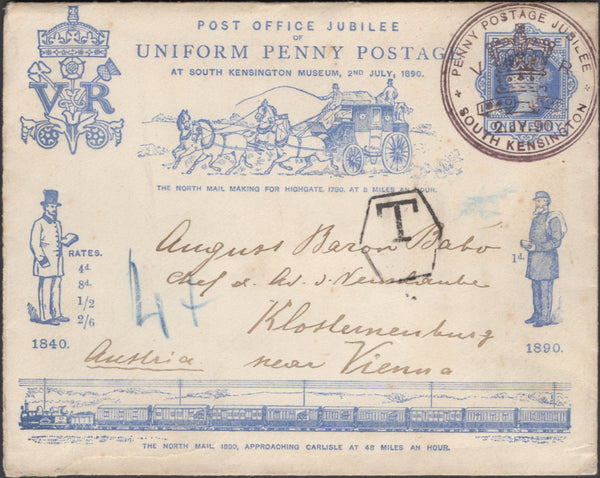 POST OFFICE JUBILEE
OF
UNIFORM PENNY POSTAG
AT SOUTH KENSINGTON MUSEUM, 2ND JULY, 1890.
V R
PENNY POSTAGE JUBILEE
V R
1840
2 JY 90
SOUTH KENSINGTON
ONE PENNY
THE NORTH MAIL MAKING FOR HIGHGATE, 1790. AT 8 MILES AN HOUR.
T
RATES.
4d.
8d.
1/2
2/6
1840.
1d.
1890.
August Baron Babo
Chef d.
Klosterneuburg
Austria near Vienna
THE NORTH MAIL, 1890, APPROACHING CARLISLE AT 48 MILES AN HOUR.